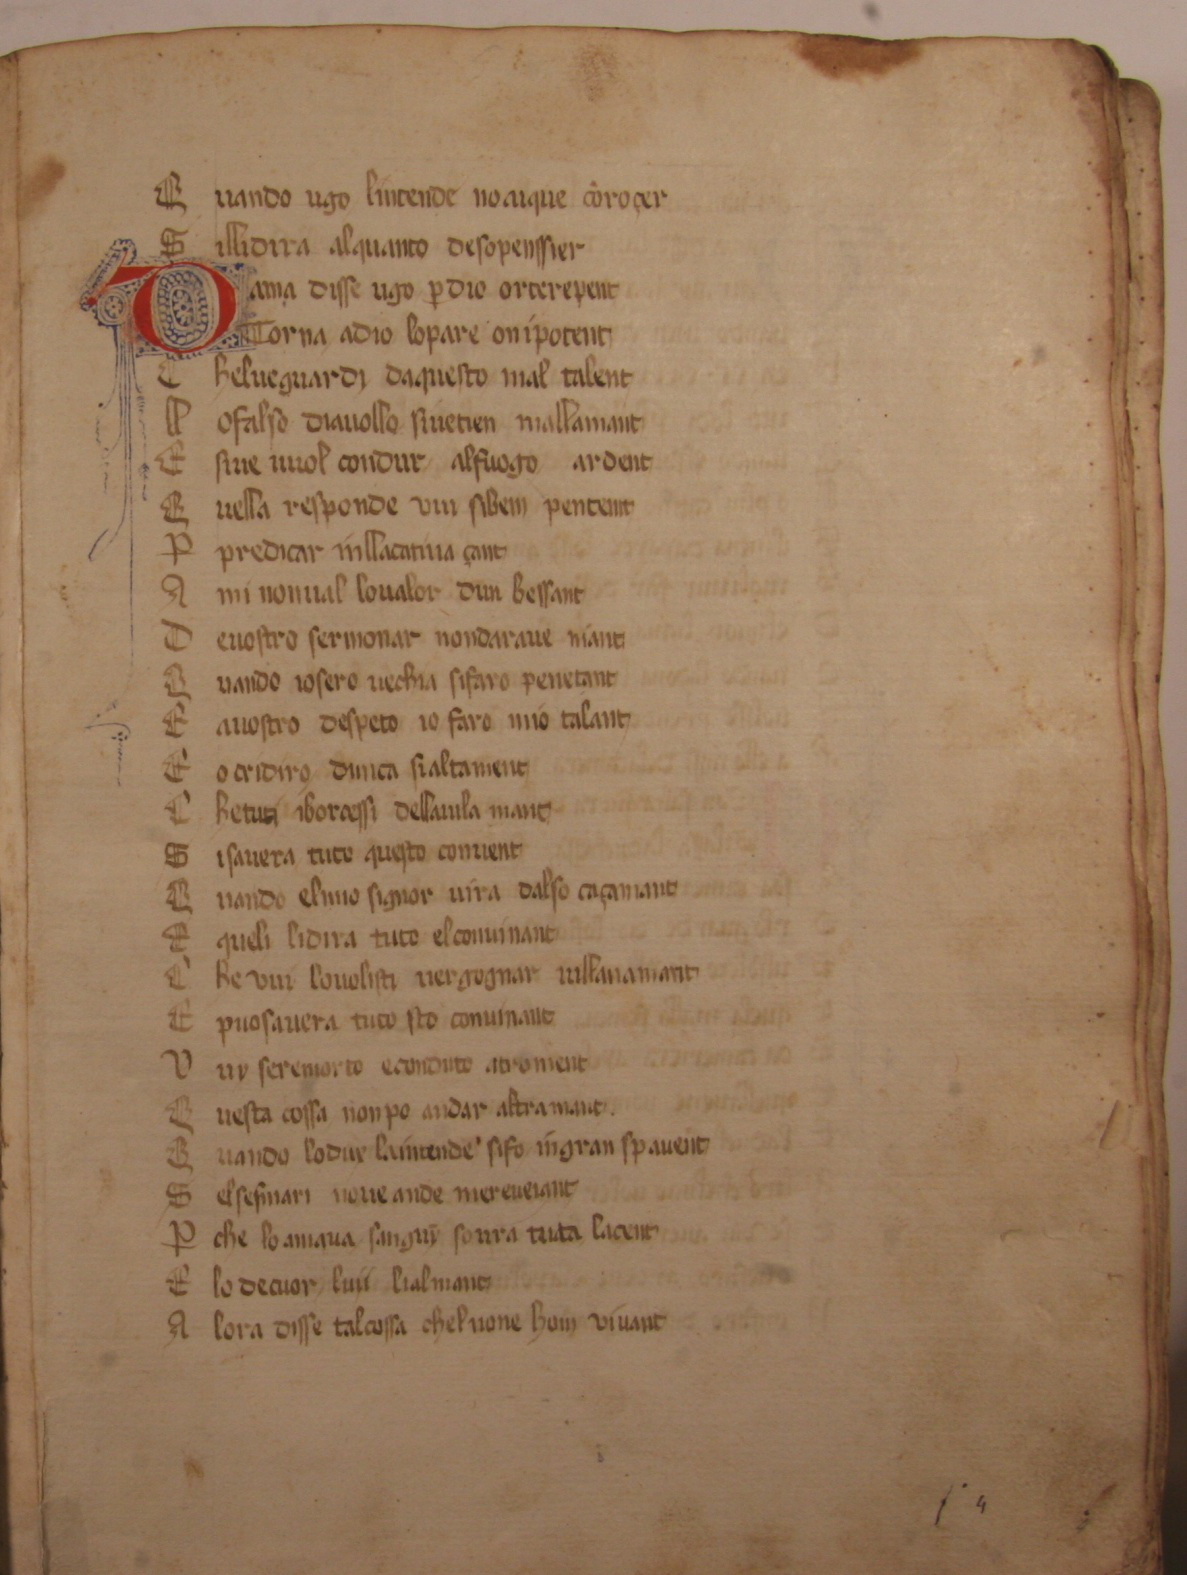 Quando ugo lintende no aique coroçer
Silli dira alquanto de so penssier
Dama disse ugo p dio or terepent
Torna a dio lo pare onipotent
Che le ve guardi da questo mal talent
Lo falso diavollo si ve tien mallamant
E si ve vuol condur al fuogo ardent
Quella responde vui si ben pentent
P predicar in lla cativa çant
A mi non val lo valor dun bessant
De vostro sermonar non darave niant
Quando io sero vechia si faro penetant
E a vostro despeto io faro mio talant
E o cridiro dunca si altament
Che tuti i borcessi della vila mant
Si savera tuto questo convent
Quando el mio signor vira dal so caçamant
E queli li dira tuto el convinant
Che vui lo volisti vergognar villanamant
E p vuo savera tuto sto convinant
Vuy sere morto e conduto a troment
Questa cossa non po andar altramant.
Quando lo due la intende si fo in gran spavent
S el sesmari no ve ande mereveiant
P che lo amava sanguy sovra tuta la cent
E lo de cuor luii lialmant
Alora disse tal cossa chel none hom vivant
4